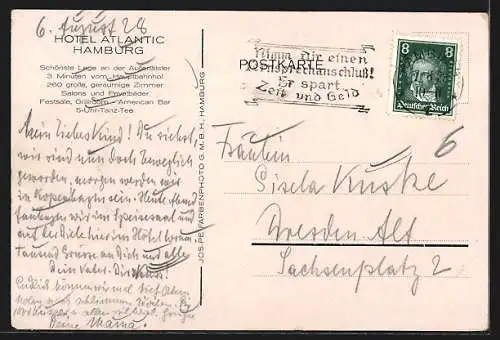 6. August 28
HOTEL ATLANTIC
HAMBURG
Schönste Lage an der Außenalster
3 Minuten vom Hauptbahnhof
260 große, geräumige Zimmer
Salons und Privatbäder
Festsäle, Grillroom, American Bar
5-Uhr-Tanz-Tee
Mein liebes Kind! Du siehst,
wir sind nun doch
geworden, morgen werden wir
in Kopenhagen sein. Heute Abend
wir im Speisesaal und
auf der Diele hier im Hotel
Tausend Grüsse an Dich und alle
Dein Vater
Endlich können wir mal tief Atem
holen nach schlimmen
Deine Mama.
JOS. PE. FARBENPHOTO G. M. B. H. HAMBURG
POSTKARTE
Nimm Dir einen
Fernsprechanschluß!
Er spart
Zeit und Geld
8 8
Deutsches Reich
6
Fräulein
Gisela Kuske
Dresden Alt
Sachsenplatz 2